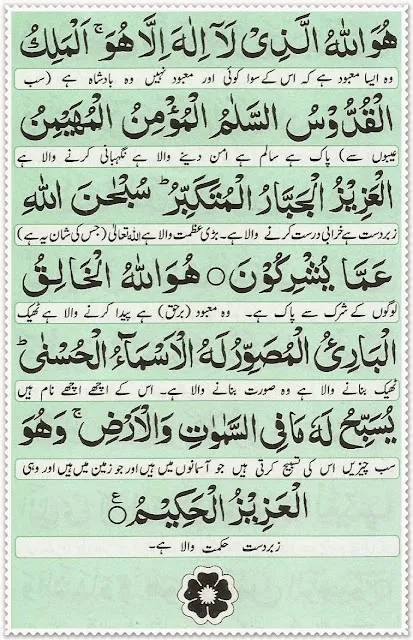 هُوَ اللّٰهُ الَّذِیْ لَاۤ اِلٰهَ اِلَّا هُوَ ۚ اَلْمَلِكُ
وہ ایسا معبود ہے کہ اس کے سوا کوئی اور معبود نہیں وہ بادشاہ ہے (سب
الْقُدُّوْسُ السَّلٰمُ الْمُؤْمِنُ الْمُهَیْمِنُ
عیبوں سے) پاک ہے سالم ہے امن دینے والا ہے نگہبانی کرنے والا ہے
الْعَزِیْزُ الْجَبَّارُ الْمُتَكَبِّرُ ؕ سُبْحٰنَ اللّٰهِ
زبردست ہے خرابی درست کرنے والا ہے۔ بڑی عظمت والا ہے اللہ تعالیٰ (جس کی شان یہ ہے)
عَمَّا یُشْرِكُوْنَ ○ هُوَ اللّٰهُ الْخَالِقُ
لوگوں کے شرک سے پاک ہے۔ وہ معبود (برحق) ہے پیدا کرنے والا ہے ٹھیک
الْبَارِئُ الْمُصَوِّرُ لَهُ الْاَسْمَآءُ الْحُسْنٰی ؕ
ٹھیک بنانے والا ہے وہ صورت بنانے والا ہے۔ اس کے اچھے اچھے نام ہیں
یُسَبِّحُ لَهٗ مَا فِی السَّمٰوٰتِ وَالْاَرْضِ ۚ وَهُوَ
سب چیزیں اس کی تسبیح کرتی ہیں جو آسمانوں میں ہیں اور جو زمین میں ہیں اور وہی
الْعَزِیْزُ الْحَكِیْمُ ○ ع
زبردست حکمت والا ہے۔